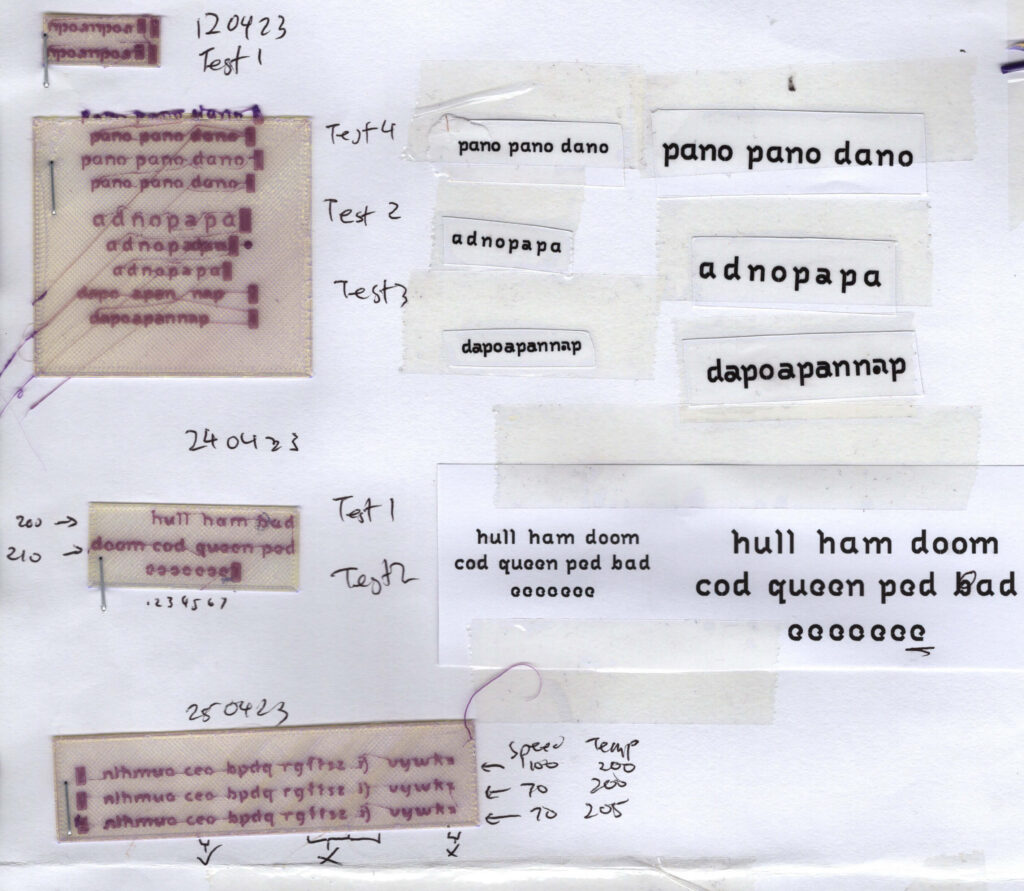 120423
Test 1
pano pano dano
pano pano dano
pano pano dano
Test 4
pano pano dano
pano pano dano
adnopapa
adnopapa
adnopapa
Test 2
adnopapa
adnopapa
dapo apan nap
dapoapannap
Test 3
dapoapannap
dapoapannap
240423
200 →
hull ham bad
Test 1
210 →
doom cod queen ped
eeeeeee
Test 2
1 2 3 4 5 6 7
hull ham doom
cod queen ped bad
eeeeeee
hull ham doom
cod queen ped bad
eeeeeee
250423
Speed Temp
nlhmuo ceo bpdq rgftsz ij vywkx
← 100 200
nlhmuo ceo bpdq rgftsz ij vywkx
← 70 200
nlhmuo ceo bpdq rgftsz ij vywkx
← 70 205